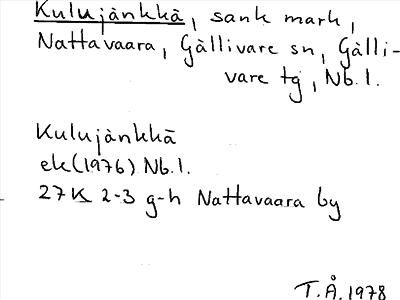 Kulujänkkä, sank mark,
Nattavaara, Gällivare sn, Gälli-
vare tg, Nb.l.
Kulujänkkä
ek (1976) Nb.l.
27K 2-3 g-h Nattavaara by
T.Å. 1978